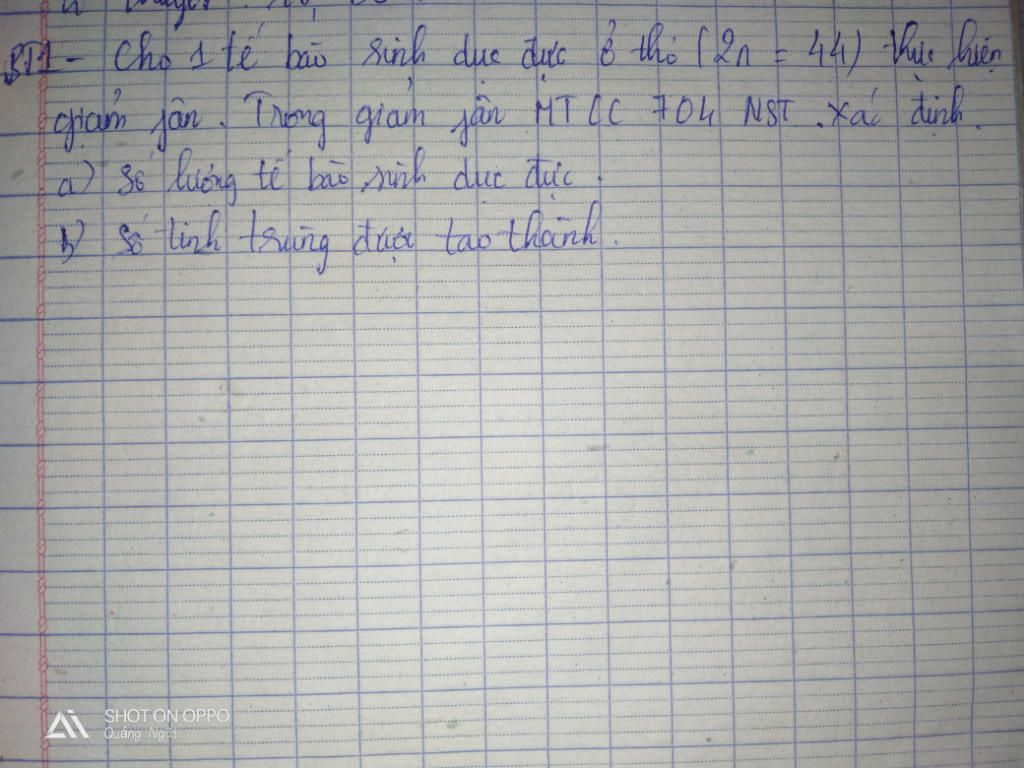 BT1 - Cho 1 tế bào sinh dục đực ở thỏ (2n = 44) thực hiện
giảm phân. Trong giảm phân MTCC 704 NST. Xác định.
a) Số lượng tế bào sinh dục đực.
b) Số tinh trùng được tạo thành.
SHOT ON OPPO